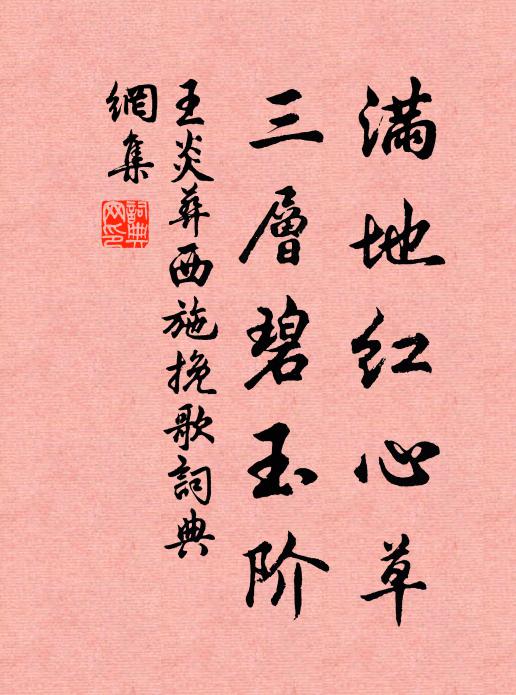 满地红心草
三層碧玉阶
王炎葬西施挽歌詞典
網集
詞典
网印